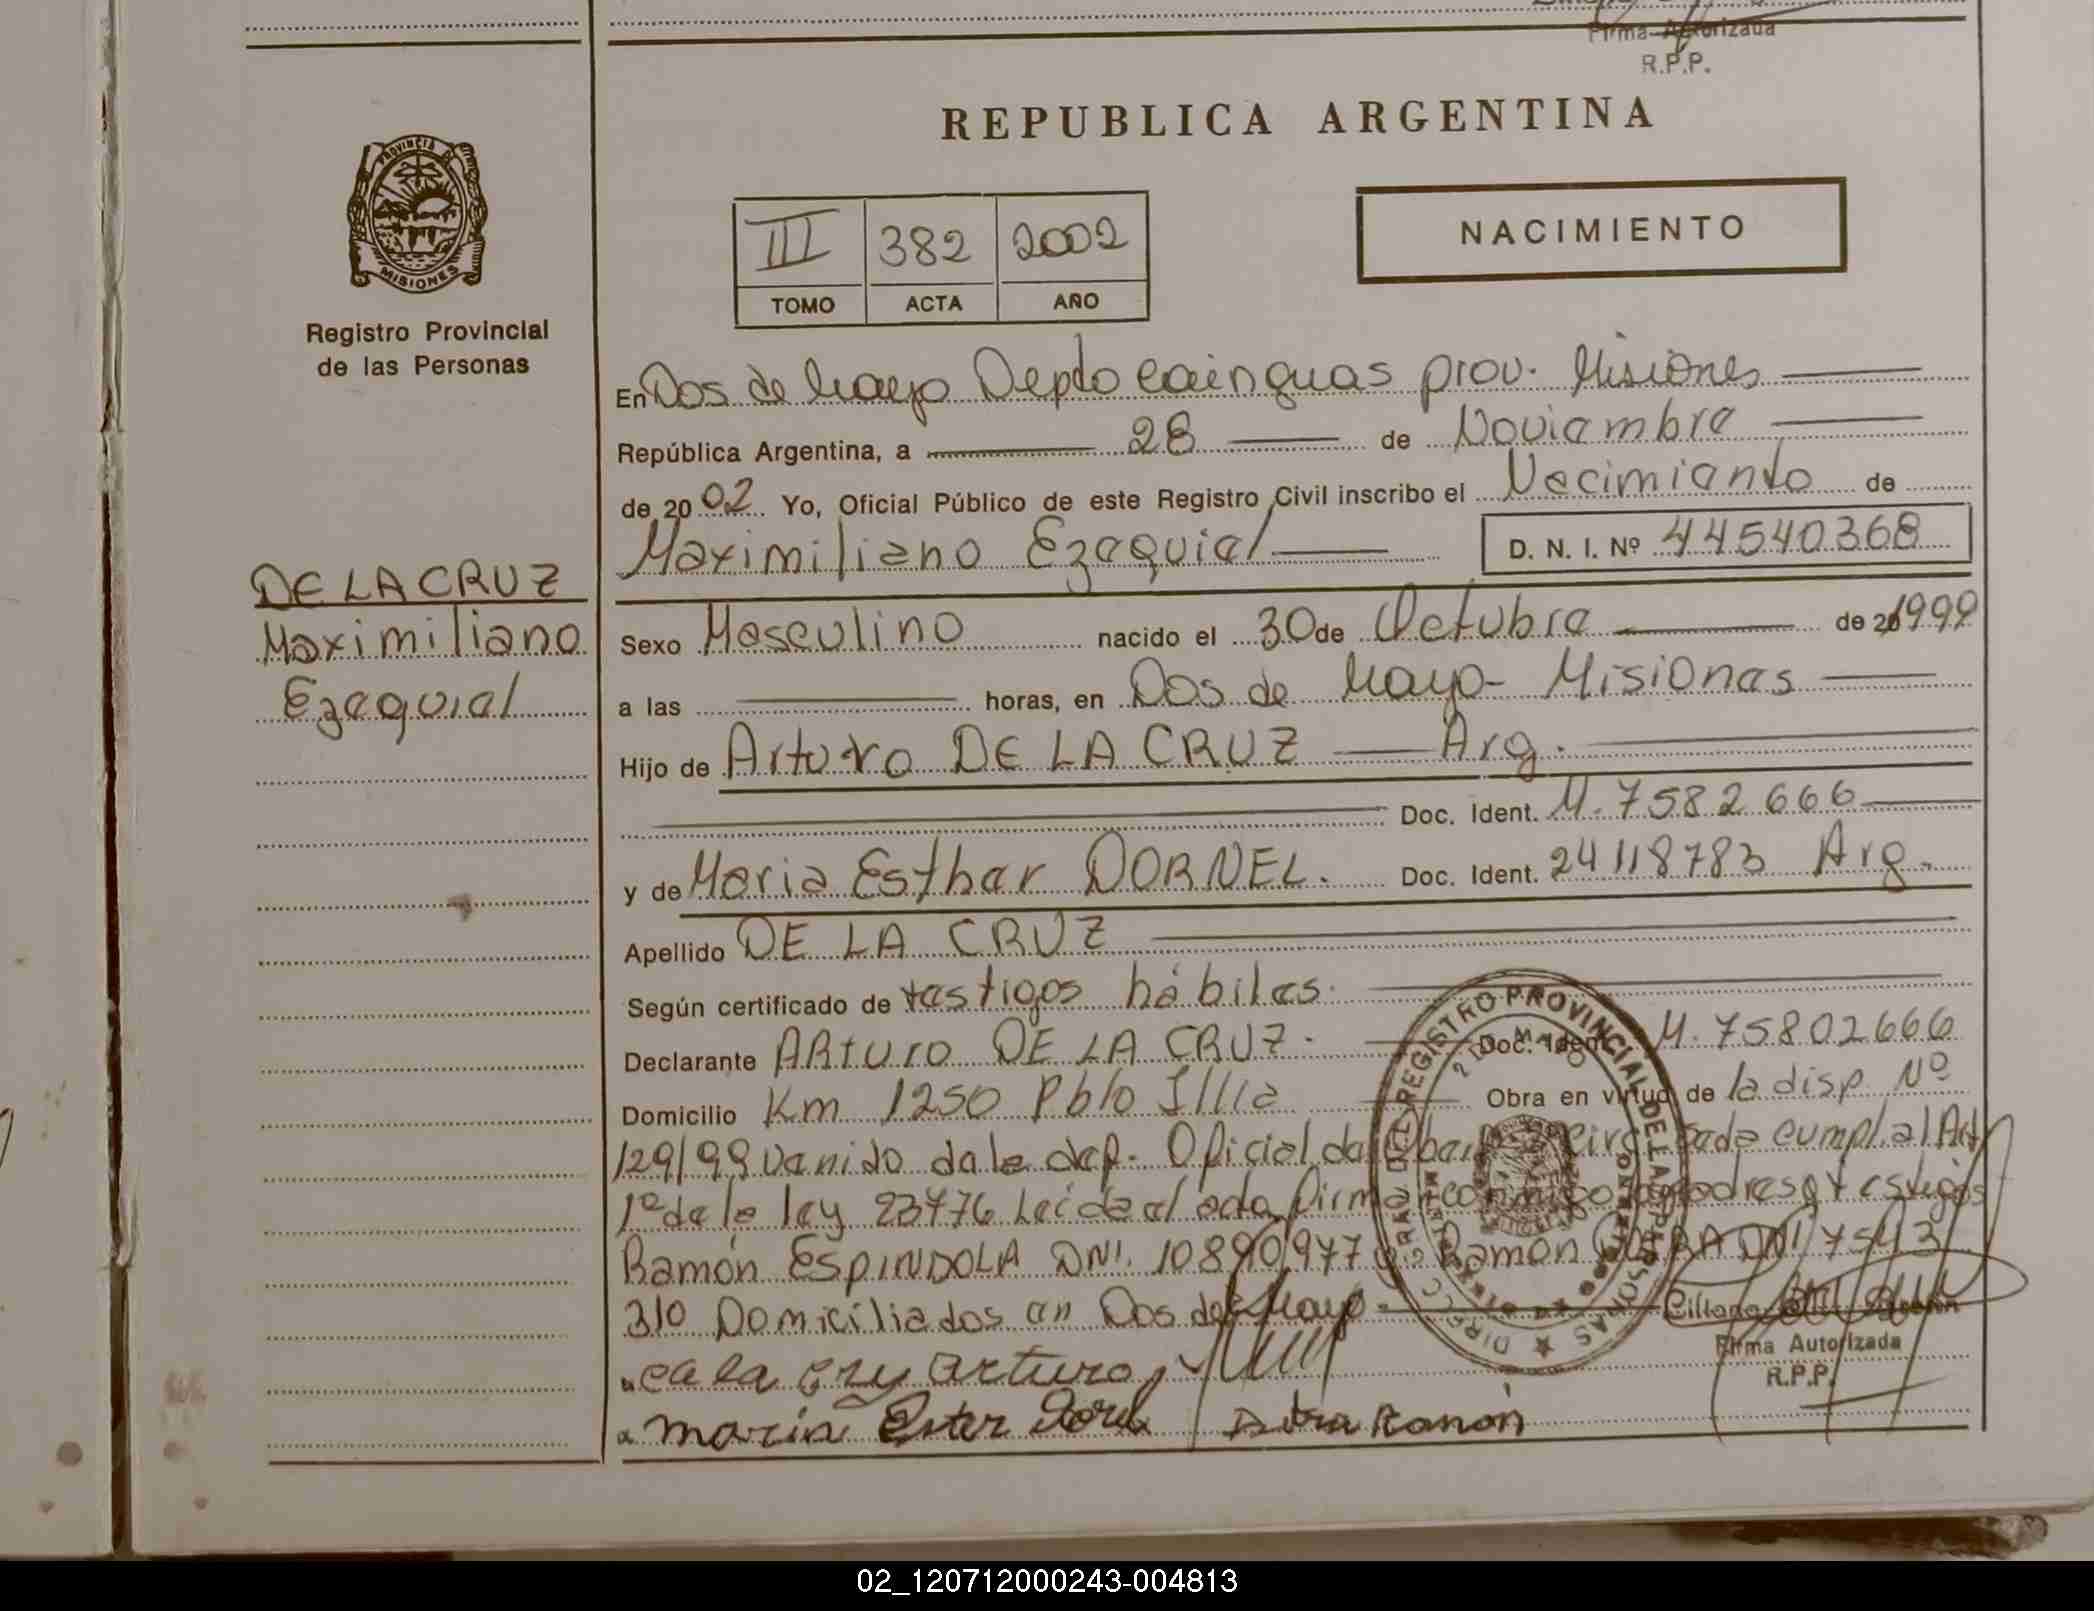 Firma Autorizada
R.P.P.
REPUBLICA ARGENTINA
PROVINCIA DE
MISIONES
Registro Provincial
de las Personas
III 382 2002
TOMO ACTA AÑO
NACIMIENTO
En Dos de Mayo Depto Cainguas prov. Misiones
República Argentina, a 28 de Noviembre
de 2002 Yo, Oficial Público de este Registro Civil inscribo el Nacimiento de
Maximiliano Ezequiel D. N. I. Nº 44540368
DE LA CRUZ
Maximiliano
Ezequiel
Sexo Masculino nacido el 30 de Octubre de 20 1999
a las horas, en Dos de Mayo - Misiones
Hijo de Arturo DE LA CRUZ Arg.
Doc. Ident. M. 7582666
y de Maria Esther DORNEL. Doc. Ident. 24118783 Arg.
Apellido DE LA CRUZ
Según certificado de testigos hábiles.
Declarante Arturo DE LA CRUZ. Doc. Ident. M. 75802666
Domicilio Km 1250 Pblo Illia Obra en virtud de la disp Nº
129/99 venido de la dep. Oficial de cumpl. al Art
1º de la ley 23776 Leida el acta firman conmigo padres y testigos
Ramón ESPINDOLA DNI. 10890977 Ramon DNI 7543
310 Domiciliados en Dos de Mayo
Firma Autorizada
R.P.P.
de la Cruz arturo
maria Ester Dornel Ramón
DIRECC. GRAL. DEL REGISTRO PROVINCIAL DE LAS PERSONAS
2 DE MAYO
02_120712000243-004813